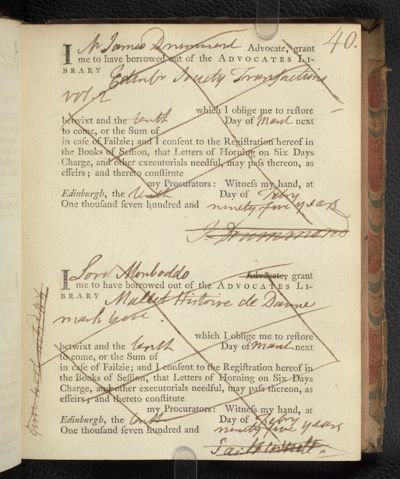 40.
I Mr James Drummond Advocate, grant
me to have borrowed out of the ADVOCATES LI-
BRARY Edinbr Society Transactions
vol. 2
which I oblige me to reſtore
betwixt and the tenth Day of March next
to come, or the Sum of
in caſe of Failzie; and I conſent to the Regiſtration hereof in
the Books of Seſſion, that Letters of Horning on Six Days
Charge, and other executorials needful, may paſs thereon, as
effeirs; and thereto conſtitute
my Procurators: Witneſs my hand, at
Edinburgh, the tenth Day of Febry
One thouſand ſeven hundred and ninety five years
J. Drummond
I Lord Monboddo Advocate, grant
me to have borrowed out of the ADVOCATES LI-
BRARY Mallet Histoire de Danne
mark
which I oblige me to reſtore
betwixt and the tenth Day of March next
to come, or the Sum of
in caſe of Failzie; and I conſent to the Regiſtration hereof in
the Books of Seſſion, that Letters of Horning on Six Days
Charge, and other executorials needful, may paſs thereon, as
effeirs; and thereto conſtitute
my Procurators: Witneſs my hand, at
Edinburgh, the tenth Day of
One thouſand ſeven hundred and ninety five years